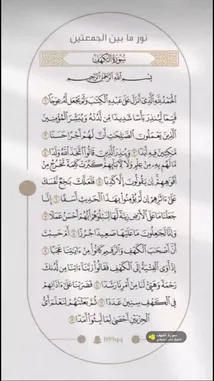 نور ما بين الجمعتين
سُورَةُ الكَهْفِ
بِسْمِ اللَّهِ الرَّحْمَٰنِ الرَّحِيمِ
الْحَمْدُ لِلَّهِ الَّذِي أَنزَلَ عَلَىٰ عَبْدِهِ الْكِتَابَ وَلَمْ يَجْعَل لَّهُ عِوَجًا ۝١
قَيِّمًا لِّيُنذِرَ بَأْسًا شَدِيدًا مِّن لَّدُنْهُ وَيُبَشِّرَ الْمُؤْمِنِينَ
الَّذِينَ يَعْمَلُونَ الصَّالِحَاتِ أَنَّ لَهُمْ أَجْرًا حَسَنًا ۝٢
مَّاكِثِينَ فِيهِ أَبَدًا ۝٣ وَيُنذِرَ الَّذِينَ قَالُوا اتَّخَذَ اللَّهُ وَلَدًا ۝٤
مَّا لَهُم بِهِ مِنْ عِلْمٍ وَلَا لِآبَائِهِمْ كَبُرَتْ كَلِمَةً تَخْرُجُ مِنْ
أَفْوَاهِهِمْ إِن يَقُولُونَ إِلَّا كَذِبًا ۝٥ فَلَعَلَّكَ بَاخِعٌ نَّفْسَكَ
عَلَىٰ آثَارِهِمْ إِن لَّمْ يُؤْمِنُوا بِهَٰذَا الْحَدِيثِ أَسَفًا ۝٦ إِنَّا
جَعَلْنَا مَا عَلَى الْأَرْضِ زِينَةً لَّهَا لِنَبْلُوَهُمْ أَيُّهُمْ أَحْسَنُ عَمَلًا ۝٧
وَإِنَّا لَجَاعِلُونَ مَا عَلَيْهَا صَعِيدًا جُرُزًا ۝٨ أَمْ حَسِبْتَ
أَنَّ أَصْحَابَ الْكَهْفِ وَالرَّقِيمِ كَانُوا مِنْ آيَاتِنَا عَجَبًا ۝٩
إِذْ أَوَى الْفِتْيَةُ إِلَى الْكَهْفِ فَقَالُوا رَبَّنَا آتِنَا مِن لَّدُنكَ
رَحْمَةً وَهَيِّئْ لَنَا مِنْ أَمْرِنَا رَشَدًا ۝١٠ فَضَرَبْنَا عَلَىٰ آذَانِهِمْ
فِي الْكَهْفِ سِنِينَ عَدَدًا ۝١١ ثُمَّ بَعَثْنَاهُمْ لِنَعْلَمَ أَيُّ
الْحِزْبَيْنِ أَحْصَىٰ لِمَا لَبِثُوا أَمَدًا ۝١٢
سورة الكهف